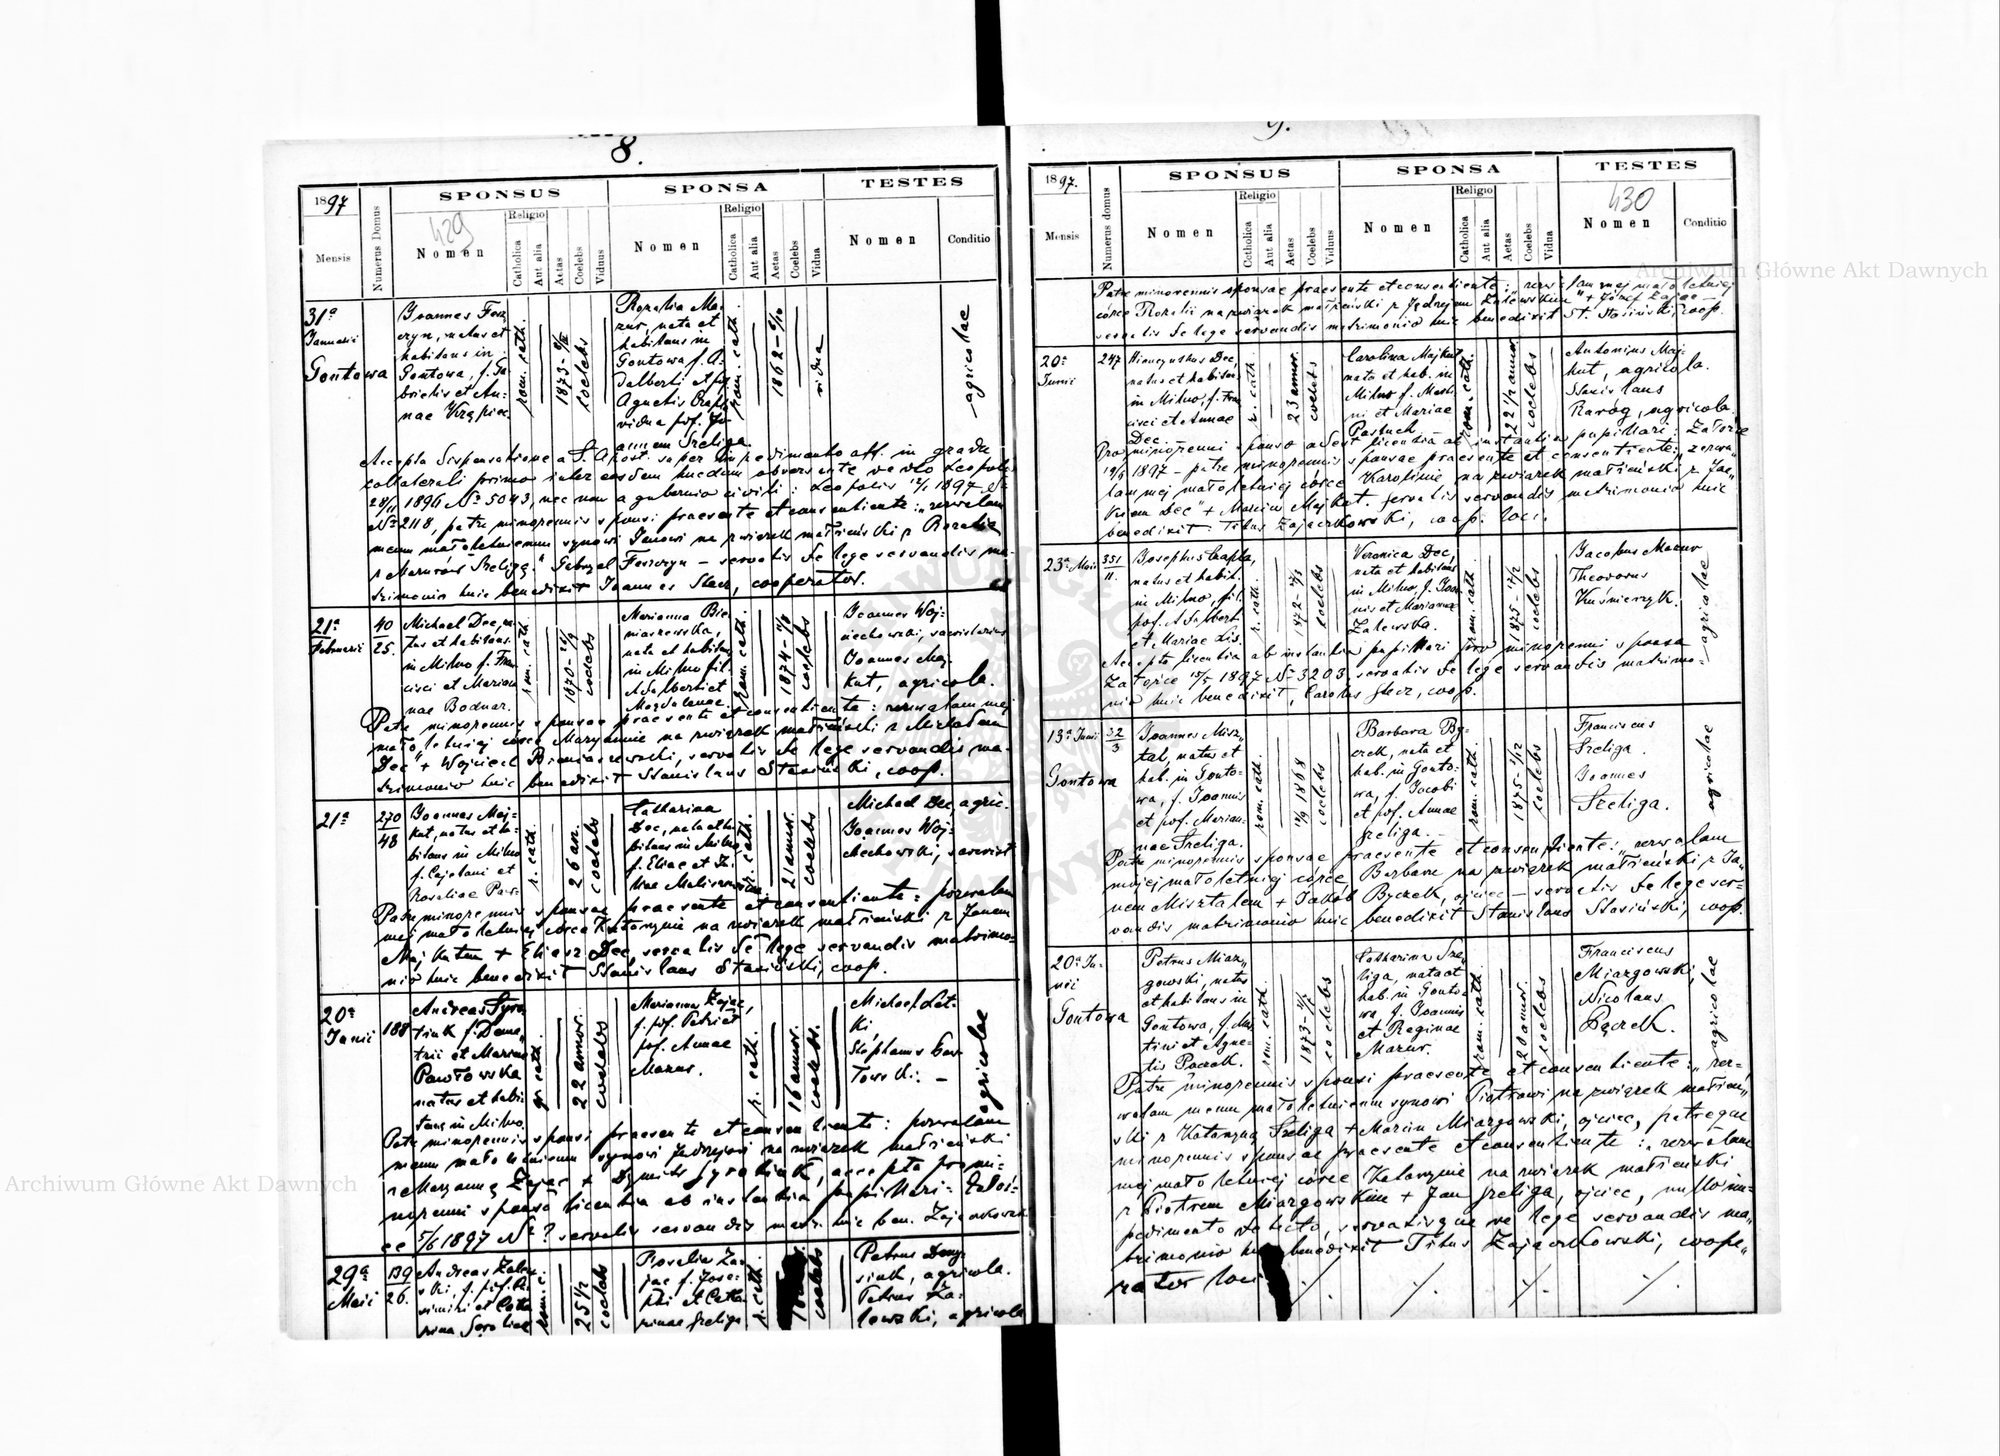 8.
1897
SPONSUS
SPONSA
TESTES
Mensis
Numerus Domus
429
Nomen
Religio
Catholica
Aut alia
Aetas
Coelebs
Viduus
Nomen
Religio
Catholica
Aut alia
Aetas
Coelebs
Vidua
Nomen
Conditio
31a
Januarii
Gontowa
Joannes Fesz
czyn, natus et
habitans in
Gontowa, f. Ga
brielis et An-
nae
rom. cath.
1873
coelebs
Rozalia Ma-
zur, nata et
habitans in
Gontowa f. A-
dalberti et pf.
Agnetis
vidua pf. Jo-
annem Szeliga.
rom. cath.
1862
vidua
agricolae
Accepta dispensatione a S. Apost. super impedimento aff. in gradu
collaterali primo inter eosdem nuced. obversante de dto Leopoli
1896 No 5043, nec non a gubernio civili: Leopolis 1897
No 2118, patre minorennis sponsi praesente et consentiente: "zezwalam
memu małoletniemu synowi Janowi na związek małżeński z Rozalią
z Mazurów Szeligą." Gabryel Feszczyn – servatis de lege servandis ma-
trimonio huic benedixit Joannes Stec, cooperator.
21a
Februarii
40
25.
Michael Dec, na-
tus et habitans
in Milno f. Fran
cisci et Marian
nae Bodnar.
rom. cath.
1870
coelebs
Marianna Bie
niaszewska,
nata et habitans
in Milno fil.
Adalberti et
Magdalenae
rom. cath.
1874
coelebs
Joannes Woj-
ciechowski, sacristianus
Joannes Maj-
kut, agricola.
Patre minorennis sponsae praesente et consentiente: zezwalam mej
małoletniej córce Maryannie na związek małżeński z Michałem
Dec + Wojciech Bieniaszewski, servatis de lege servandis ma-
trimonio huic benedixit Stanislaus Stasiński, coop.
21a
270
48
Joannes Maj-
kut, natus et ha-
bitans in Milno
f. Cajetani et
Rosaliae
r. cath.
26 an.
coelebs
Catharina
Dec, nata et ha-
bitans in Milno
f. Eliae et
r. cath.
21 annor.
coelebs
Michael Dec, agric.
Joannes Woj-
ciechowski, sacrist
Patre minorennis sponsae praesente et consentiente: pozwalam
mej małoletniej córce Katarzynie na związek małżeński z Janem
Majkutem + Eliasz Dec, servatis de lege servandis matrimo-
nio huic benedixit Stanislaus Stasiński, coop.
20a
Junii
188
Andreas Syro
tiuk f. Deme
trii et Mariae
Pawłowska
natus et habi
tans in Milno
gr. cath.
22 annor.
coelebs
Marianna Zając,
f. pf. Petri et
pf. Annae
Mazur.
r. cath.
16 annor.
coelebs.
Michael Lat-
ki
Stephanus
agricolae
Patre minorennis sponsi praesente et consentiente: pozwalam
memu małoletniemu synowi Jędrzejowi na związek małżeński
z Maryanną Zając + Dymitr Syrotiuk, accepta pro mi-
norenni sponsa licentia ab instantia pupillari:
5/6 1897 No ? servatis servandis matr. huic ben. Zajączkowski
29a
Maii
139
26.
Andreas Zalew
ski, f. pf.
et Catha
rina
25 1/2
coelebs
Rosalia Za-
jąc f. Jose-
phi et Catha
rinae Szeliga
r. cath.
coelebs
Petrus
agricola.
Petrus Za-
lewski, agricola
9.
1897.
SPONSUS
SPONSA
TESTES
Mensis
Numerus domus
Nomen
Religio
Catholica
Aut alia
Aetas
Coelebs
Viduus
Nomen
Religio
Catholica
Aut alia
Aetas
Coelebs
Vidua
430
Nomen
Conditio
Patre minorennis sponsae praesente et consentiente: "zezwalam mej małoletniej
córce Rozalii na związek małżeński z Jędrzejem Zalewskim" + Józef Zając –
servatis de lege servandis matrimonio huic benedixit St. Stasiński, coop.
20a
Junii
247
Hiacynthus Dec,
natus et habitans
in Milno, f. Fran
cisci et Annae
Dec.
r. cath.
23 annor.
coelebs
Carolina Majkut
nata et hab. in
Milno f. Marti-
ni et Mariae
Pastuch
rom. cath.
22 1/2 annor.
coelebs
Antonius Maj-
kut, agricola.
Stanislaus
Raróg, agricola.
Pro minorenni sponso adest licentia ab instantia pupillari: Załoźce
1897 – patre minorennis sponsae praesente et consentiente: zezwa-
lam mej małoletniej córce Karolinie na związek małżeński z Jac-
kiem Dec" + Marcin Majkut. servatis servandis matrimonio huic
benedixit Titus Zajączkowski, coop. loci.
23a Maii
351
11.
Josephus Czapla,
natus et habit.
in Milno, fil.
pof. Adalberti
et Mariae Lis.
r. cath.
1872
coelebs
Veronica Dec,
nata et habitans
in Milno, f. Joan
nis et Marianna
Zalewska.
rom. cath.
1875
coelebs
Jacobus Mazur
Theodorus
Kuśnierzyk.
agricolae
Accepta licentia ab instantia pupillari pro minorenni sponsa
Załoźce 1897 No 3203, servatis de lege servandis matrimo-
nio huic benedixit, Carolus Stecz, coop.
13a Junii
32
3
Gontowa
Joannes Misz-
tal, natus et
hab. in Gonto-
wa, f. Joannis
et pof. Marian-
nae Szeliga.
rom. cath.
1868
coelebs
Barbara By-
czek, nata et
hab. in Gonto-
wa, f. Jacobi
et pof. Annae
Szeliga.
rom. cath.
1875
coelebs
Franciscus
Szeliga.
Joannes
Szeliga.
agricolae
Patre minorennis sponsae praesente et consentiente: "zezwalam
mojej małoletniej córce Barbarze na związek małżeński z Ja-
nem Misztalem + Jakób Byczek, ojciec – servatis de lege ser-
vandis matrimonio huic benedixit Stanislaus Stasiński, coop.
20a Ju-
nii
Gontowa
Petrus Miaz-
gowski, natus
et habitans in
Gontowa, f. Mar
tini et Agne-
tis
rom. cath.
1873
coelebs
Catharina Sze-
liga, nata et
hab. in Gonto-
wa f. Joannis
et Reginae
Mazur.
rom. cath.
20 annor.
coelebs
Franciscus
Miazgowski,
Nicolaus
agricolae
Patre minorennis sponsi praesente et consentiente: "zez-
walam memu małoletniemu synowi Piotrowi na związek małżeń-
ski z Katarzyną Szeliga + Marcin Miazgowski, ojciec, patreque
minorennis sponsae praesente et consentiente: "zezwalam
mej małoletniej córce Katarzynie na związek małżeński
z Piotrem Miazgowskim + Jan Szeliga, ojciec, nullo im-
pedimento detecto, servatisque de lege servandis ma-
trimonio huic benedixit Titus Zajączkowski, coope-
rator loci
Archiwum Główne Akt Dawnych
Archiwum Główne Akt Dawnych